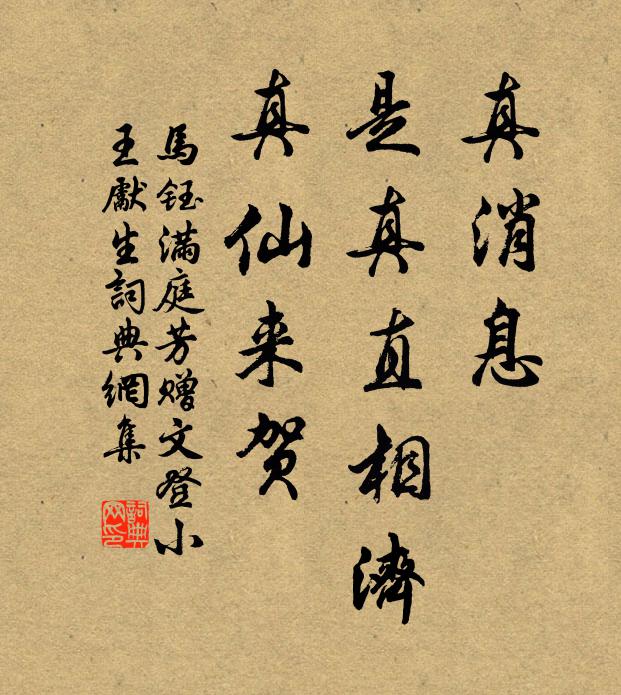 真消息
是真直相濟
真仙来贺
馬鈺滿庭芳赠文登小
王獻生詞典網集
詞典网印